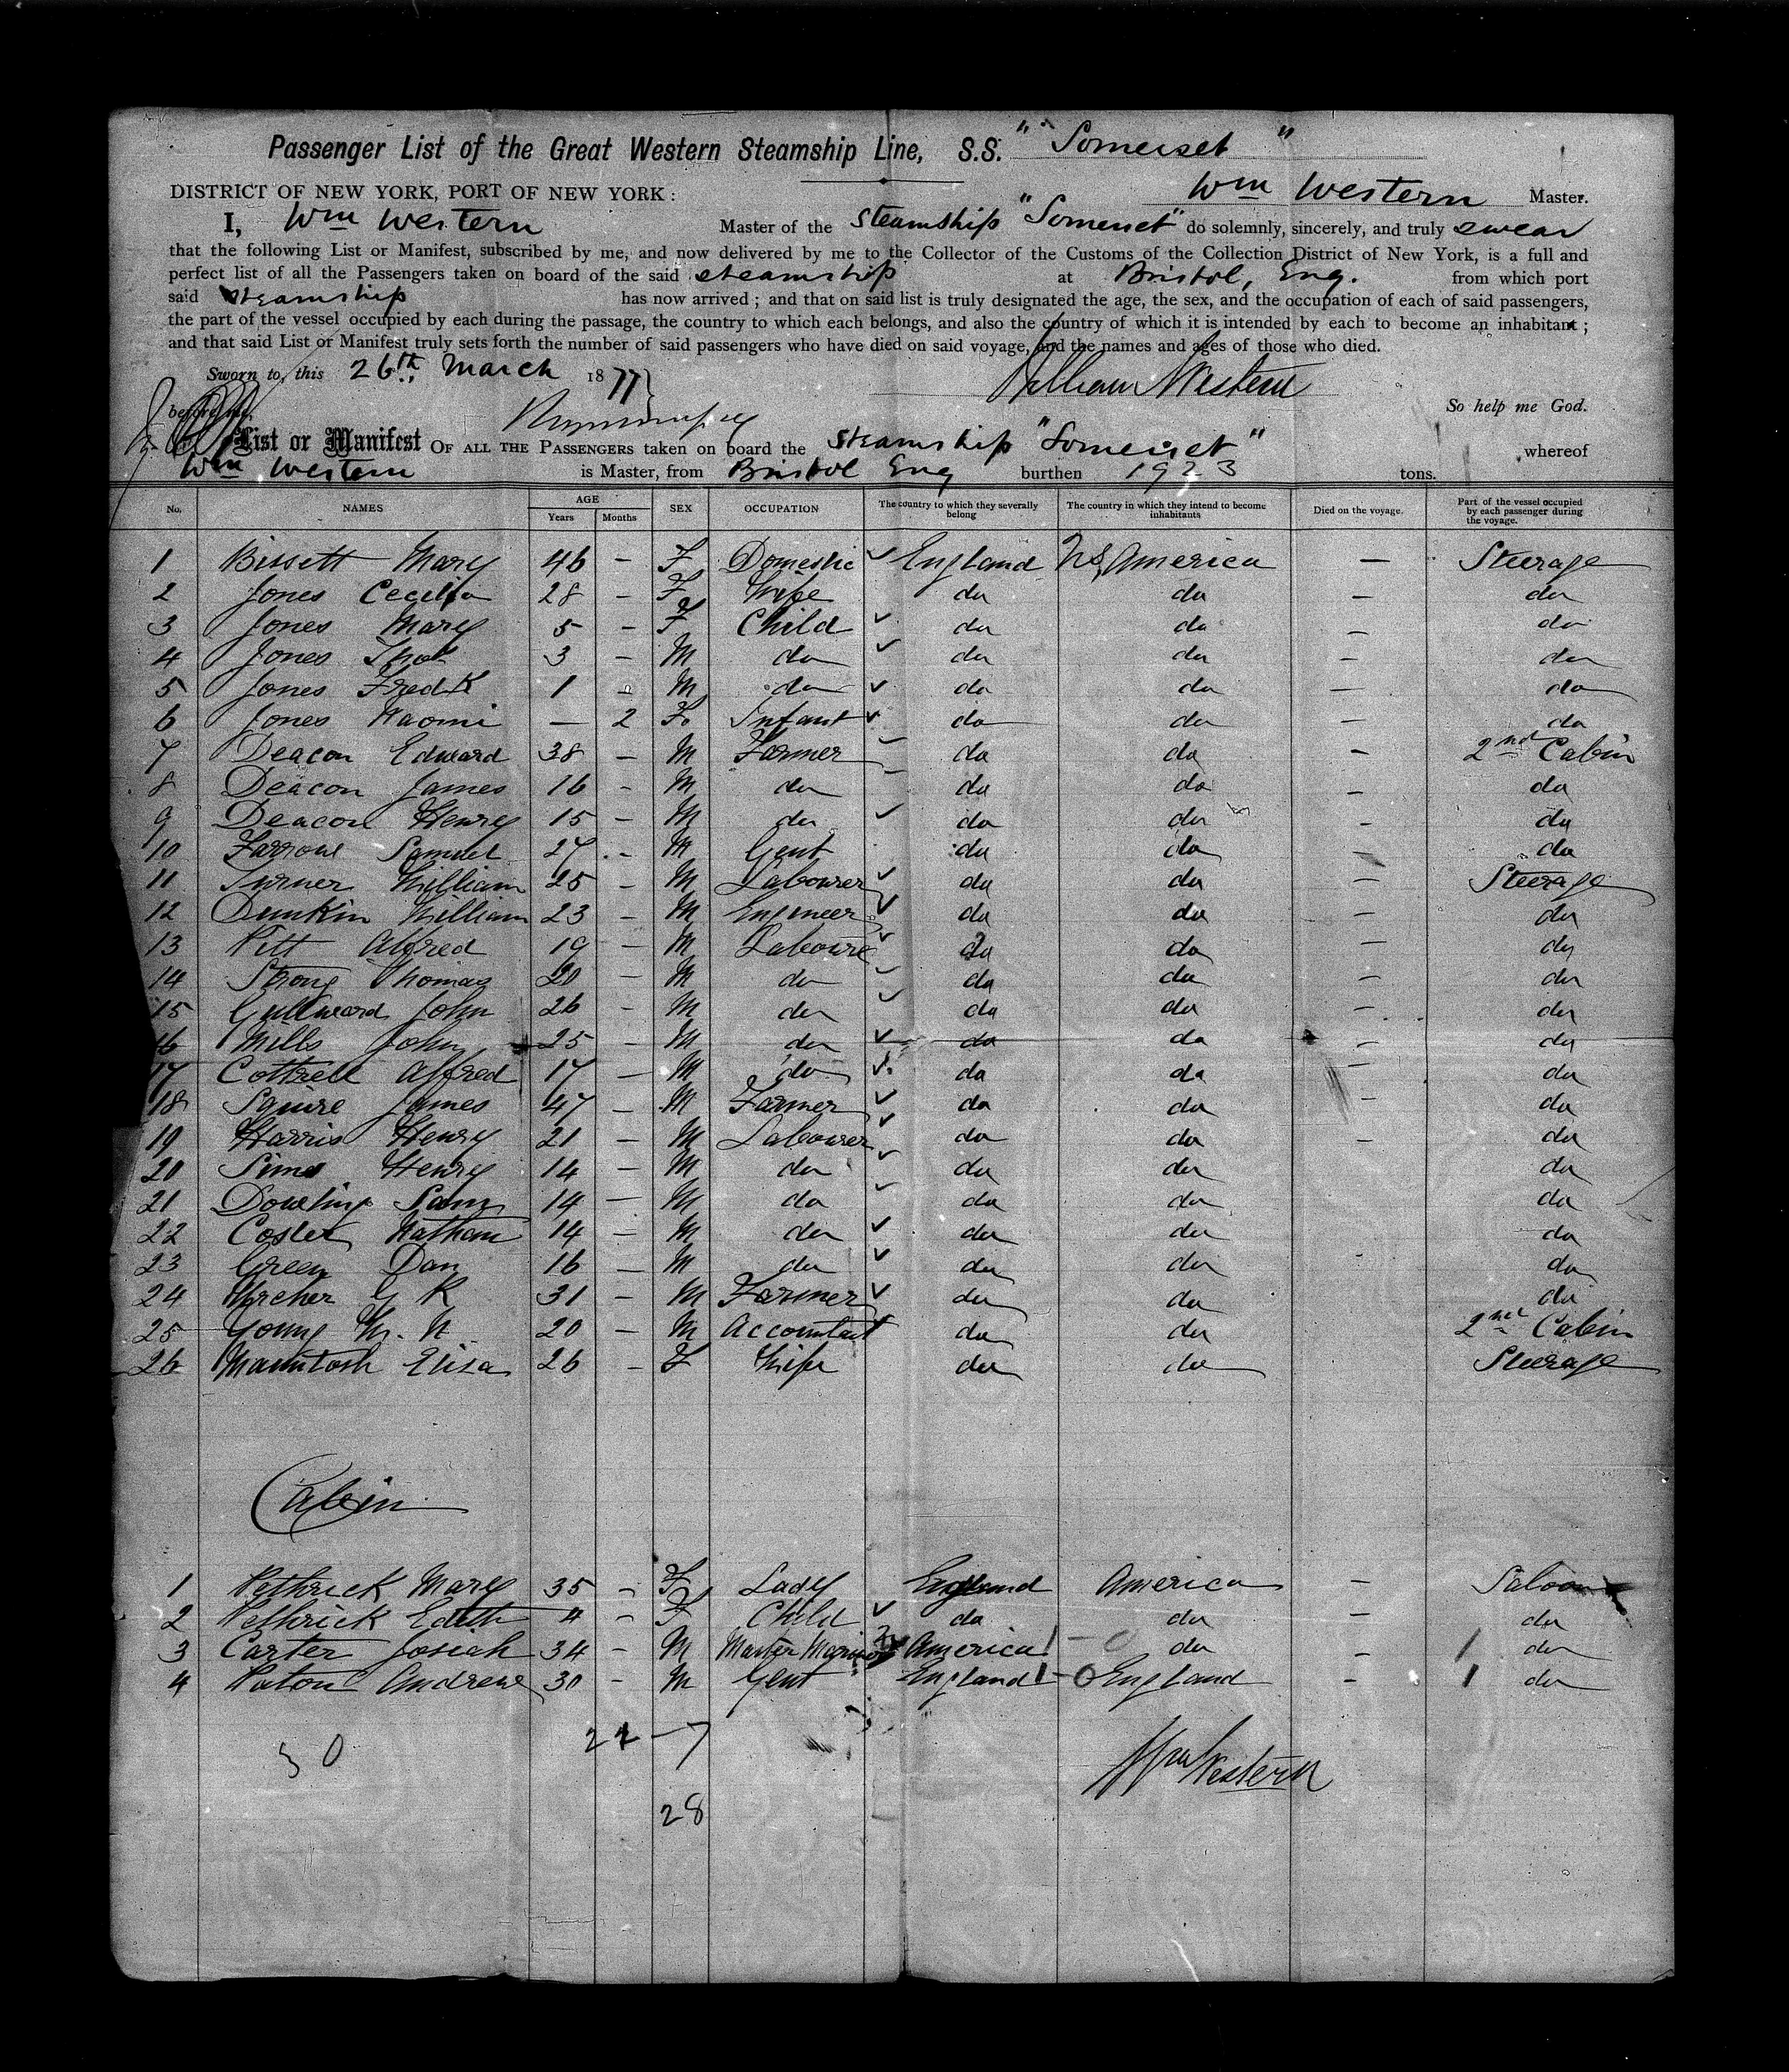 Passenger List of the Great Western Steamship Line, S.S. "Somerset"
DISTRICT OF NEW YORK, PORT OF NEW YORK: Wm Western Master.
I, Wm Western Master of the Steamship "Somerset" do solemnly, sincerely, and truly swear
that the following List or Manifest, subscribed by me, and now delivered by me to the Collector of the Customs of the Collection District of New York, is a full and
perfect list of all the Passengers taken on board of the said steamship at Bristol, Eng. from which port
said steamship has now arrived; and that on said list is truly designated the age, the sex, and the occupation of each of said passengers,
the part of the vessel occupied by each during the passage, the country to which each belongs, and also the country of which it is intended by each to become an inhabitant;
and that said List or Manifest truly sets forth the number of said passengers who have died on said voyage, and the names and ages of those who died.
Sworn to, this 26th March 1877 William Western
before me, So help me God.
List or Manifest OF ALL THE PASSENGERS taken on board the Steamship "Somerset" whereof
Wm Western is Master, from Bristol Eng burthen 1923 tons.
No. NAMES AGE Years Months SEX OCCUPATION The country to which they severally belong The country in which they intend to become inhabitants Died on the voyage. Part of the vessel occupied by each passenger during the voyage.
1 Bissett Mary 46 – F Domestic ✓ England U.S. America – Steerage
2 Jones Cecilia 28 – F Wife do do – do
3 Jones Mary 5 – F Child ✓ do do – do
4 Jones Thos 3 – M do ✓ do do – do
5 Jones Fredk 1 – M do ✓ do do – do
6 Jones Naomi – 2 F. Infant ✓ do do – do
7 Deacon Edward 38 – M Farmer ✓ do do – 2nd Cabin
8 Deacon James 16 – M do do do – do
9 Deacon Henry 15 – M do ✓ do do – do
10 Farrow Samuel 27 – M Gent do do – do
11 Turner William 25 – M Labourer ✓ do do – Steerage
12 Dunkin William 23 – M Engineer ✓ do do – do
13 Pitt Alfred 19 – M Laboure ✓ do do – do
14 Strong Thomas 20 – M do ✓ do do – do
15 Gulliward John 26 – M do ✓ do do – do
16 Mills John 25 – M do ✓ do do – do
17 Cottrell Alfred 17 – M do ✓ do do – do
18 Squire James 47 – M Farmer ✓ do do – do
19 Harris Henry 21 – M Labourer ✓ do do – do
20 Sims Henry 14 – M do ✓ do do do
21 Dowling Sam 14 – M do ✓ do do do
22 Coster Nathan 14 – M do ✓ do do do
23 Green Dan 16 – M do ✓ do do do
24 Archer G R 31 – M Farmer ✓ do do do
25 Young 20 – M Accountant do do 2nd Cabin
26 Macintosh Eliza 26 – F Wife do do Steerage
Cabin
1 Pethrick Mary 35 – F Lady England America – Saloon
2 Pethrick Edith 4 – F Child ✓ do do – do
3 Carter Josiah 34 – M Master Mariner America 1 – 0 do – 1 do
4 Paton Andrew 30 – M Gent England 1 – 0 England – 1 do
30 21 – 7 Wm Western
28